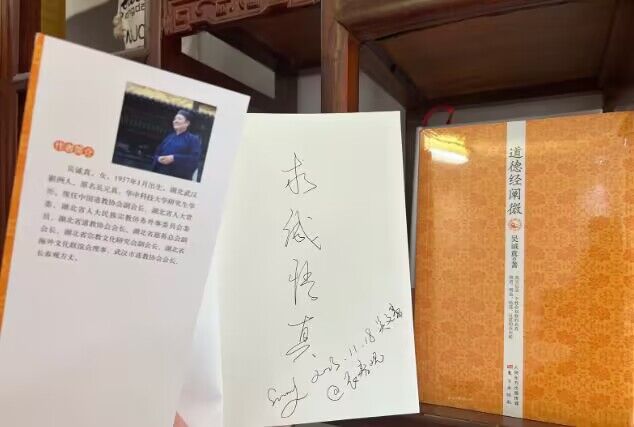 作者简介
吴诚真，女，1957年1月出生，湖北武汉
新洲人，原名吴元真，华中科技大学研究生学
历，现任中国道教协会副会长、湖北省人大常
委、湖北省人大民族宗教侨务外事委员会委
员、湖北省道教协会会长、湖北省慈善总会副
会长、湖北省宗教文化研究会副会长、湖北省
海外文化联谊会理事、武汉市道教协会会长、
长春观方丈。
求诚悟真
11.18
@长春观
道德经阐微
吴诚真 著
人民东方出版传媒
东方出版社